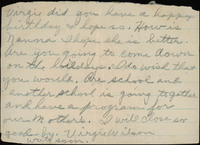 Virgie did you have a happy
birthday I hope so. How is
Nanna I hope she is better.
Are you going to come down
on the holidays. I do wish that
you would. Our school and
another school is going together
and have a program for
our Mothers. I will close so
good-by. Virgie Wilson
write soon.